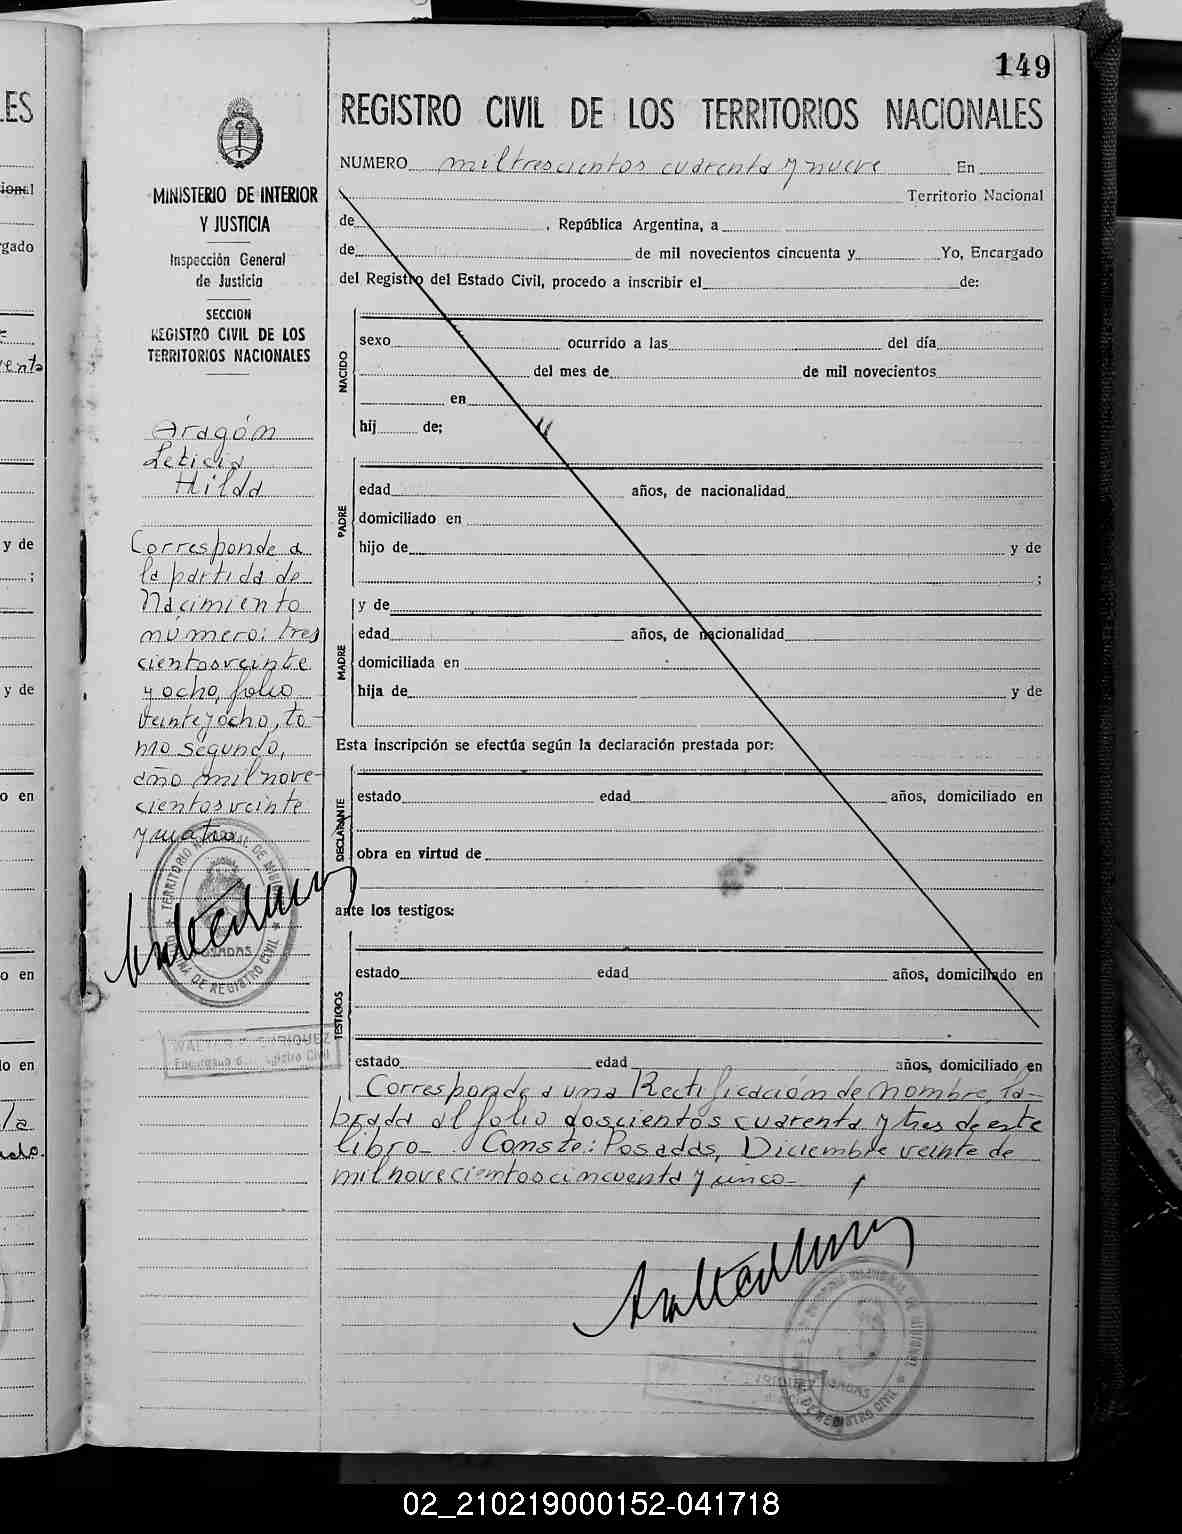 149
REGISTRO CIVIL DE LOS TERRITORIOS NACIONALES
NUMERO miltrescientos cuarenta y nueve En
Territorio Nacional
de , República Argentina, a
de de mil novecientos cincuenta y Yo, Encargado
del Registro del Estado Civil, procedo a inscribir el de:
NACIDO
sexo ocurrido a las del día
del mes de de mil novecientos
en
hij de;
PADRE
edad años, de nacionalidad
domiciliado en
hijo de y de
;
y de
MADRE
edad años, de nacionalidad
domiciliada en
hija de y de
Esta inscripción se efectúa según la declaración prestada por:
DECLARANTE
estado edad años, domiciliado en
obra en virtud de
ante los testigos:
TESTIGOS
estado edad años, domiciliado en
estado edad años, domiciliado en
Corresponde a una Rectificación de nombre, la-
brada al folio doscientos cuarenta y tres de este
libro_ Conste: Posadas, Diciembre veinte de
mil novecientos cincuenta y unco_
MINISTERIO DE INTERIOR
Y JUSTICIA
Inspección General
de Justicia
SECCION
REGISTRO CIVIL DE LOS
TERRITORIOS NACIONALES
Aragón
Leticia
Hilda
Corresponde a
la partida de
Nacimiento
número: tres
cientos veinte
y ocho, folio
veinte y ocho, to-
mo segundo,
año mil nove-
cientos veinte
y cuatro
TERRITORIO NACIONAL DE
POSADAS
DE REGISTRO CIVIL
LES
ional
gado
venta
y de
;
y de
o en
o en
lo en
02_210219000152-041718